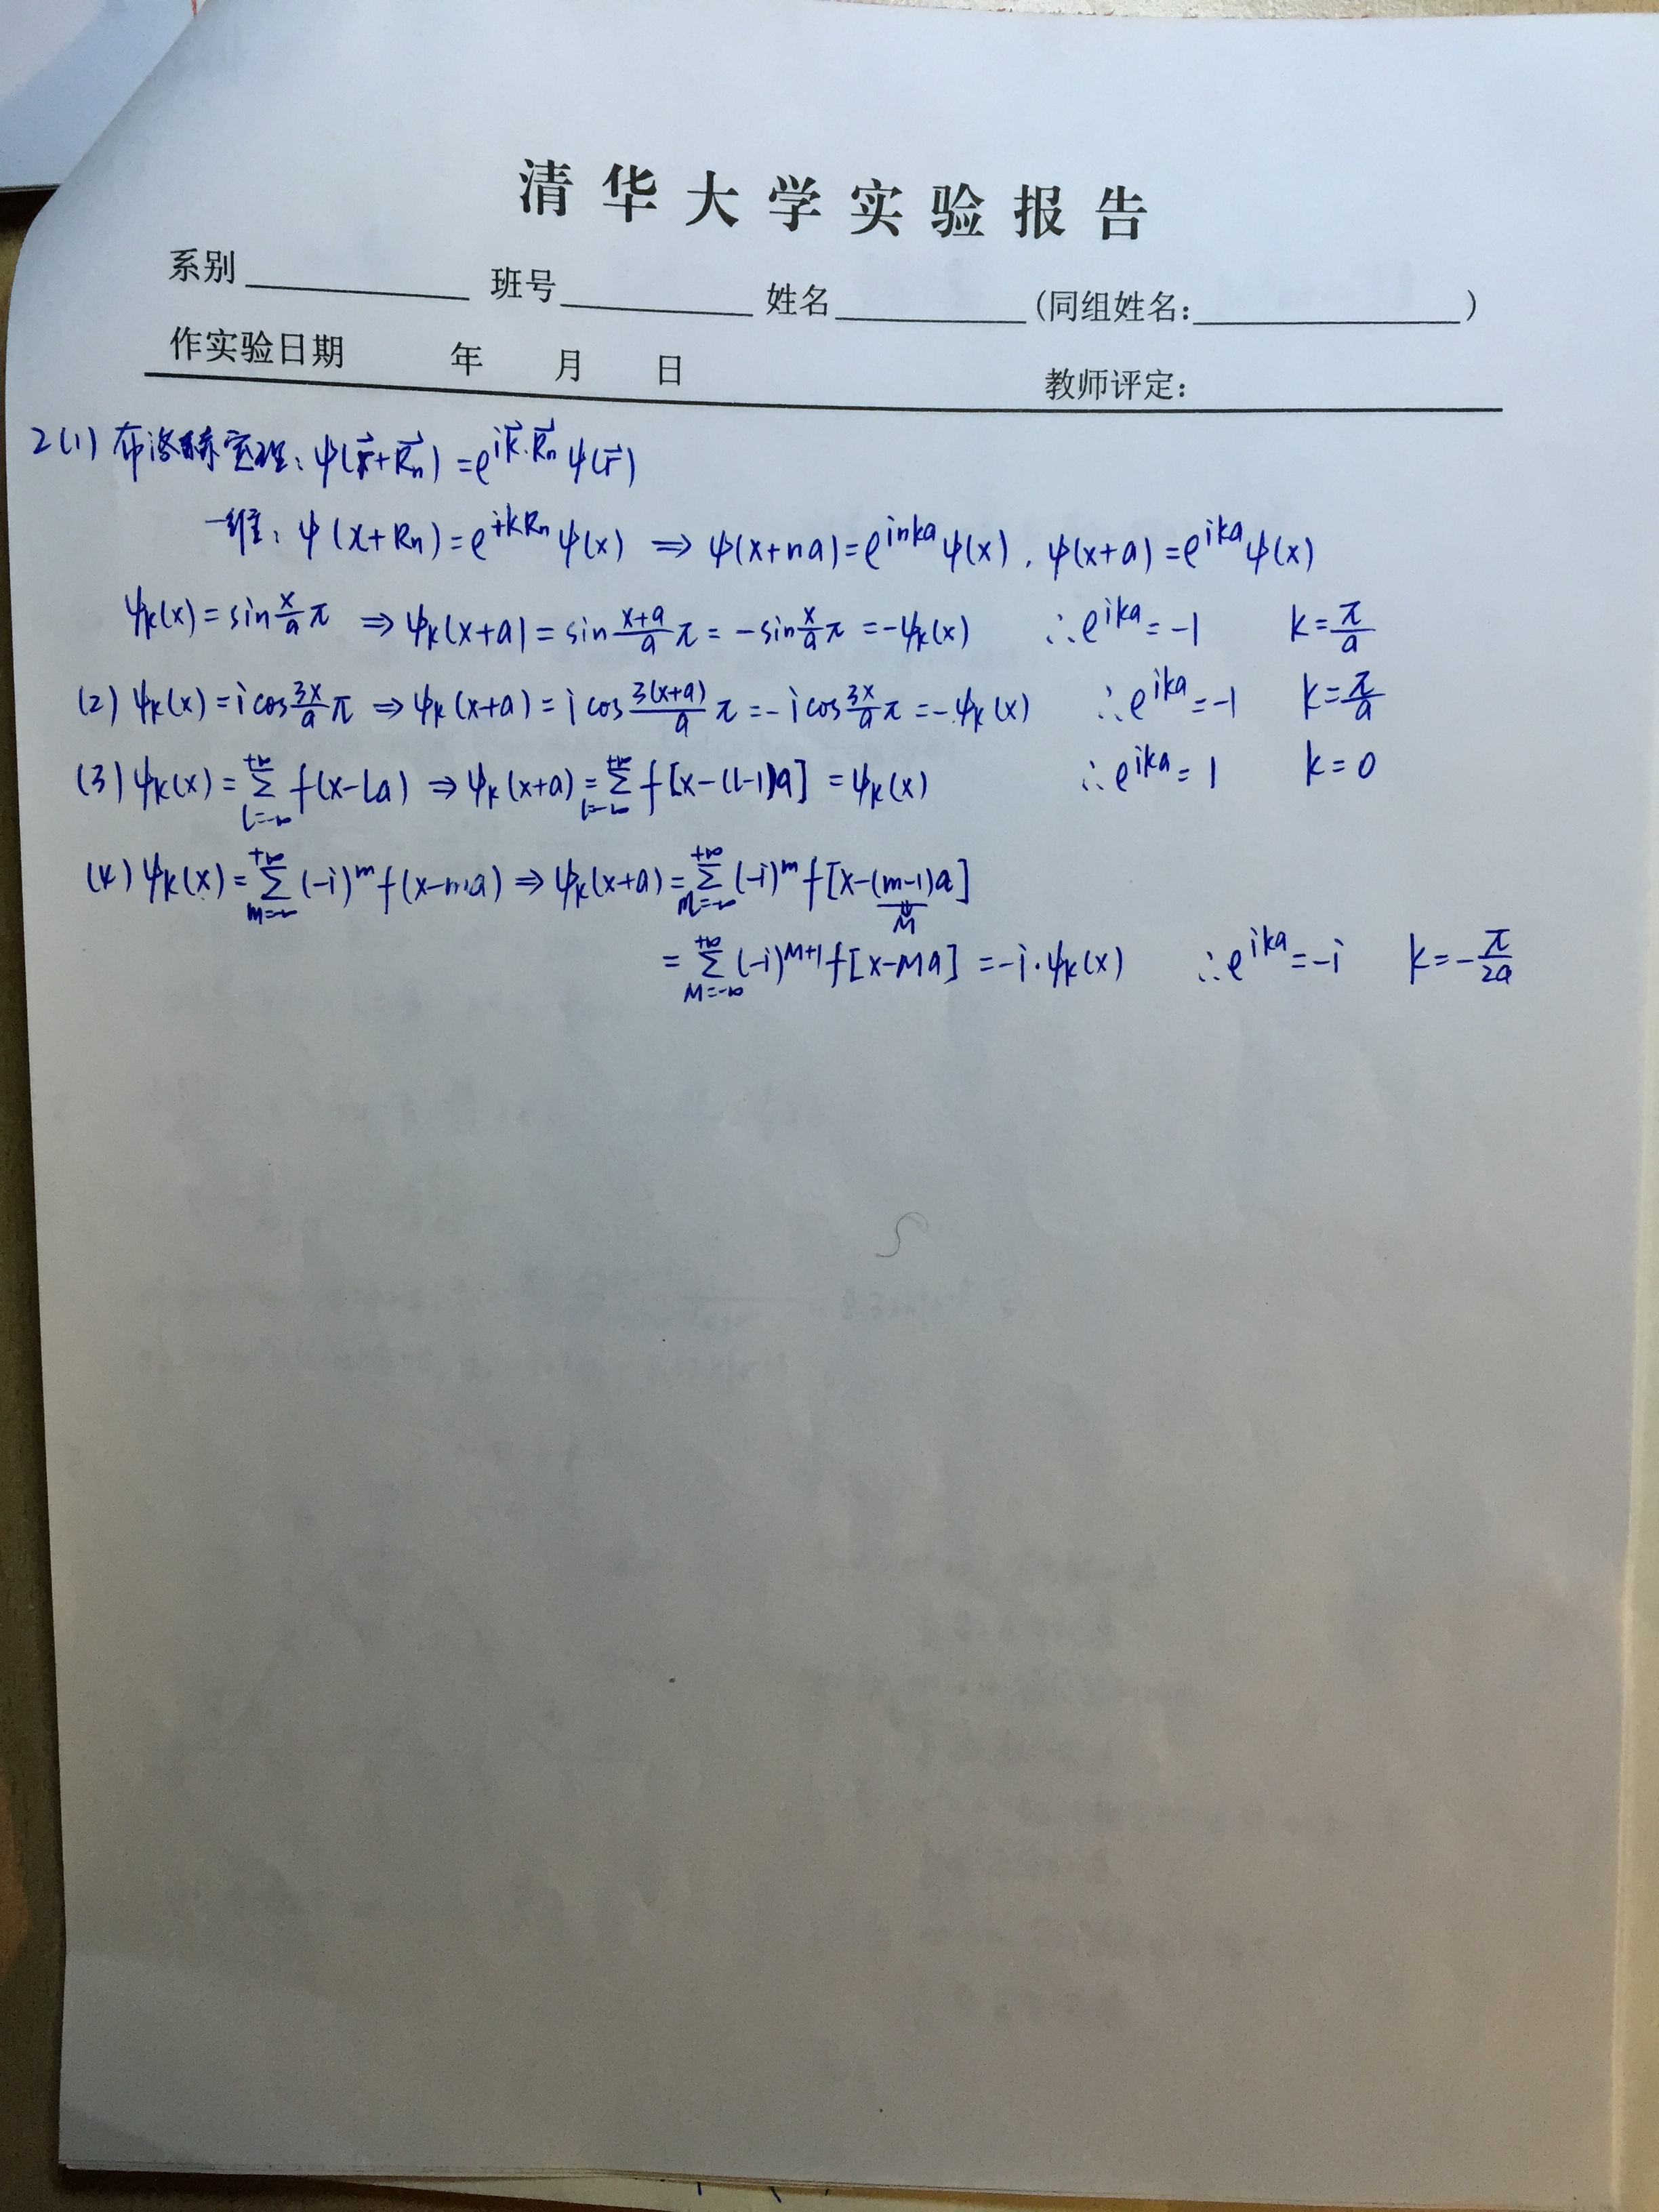 清华大学实验报告
系别 班号 姓名 (同组姓名: )
作实验日期 年 月 日 教师评定:
2(1) 布洛赫定理: ψ(r⃗+R⃗n)=e^{ik⃗·R⃗n}ψ(r⃗)
一维: ψ(x+Rn)=e^{ikRn}ψ(x) ⇒ ψ(x+na)=e^{inka}ψ(x), ψ(x+a)=e^{ika}ψ(x)
ψk(x)=sin\frac{x}{a}π ⇒ ψk(x+a)=sin\frac{x+a}{a}π=-sin\frac{x}{a}π=-ψk(x) ∴e^{ika}=-1 k=\frac{π}{a}
(2) ψk(x)=i cos\frac{3x}{a}π ⇒ ψk(x+a)=i cos\frac{3(x+a)}{a}π=-i cos\frac{3x}{a}π=-ψk(x) ∴e^{ika}=-1 k=\frac{π}{a}
(3) ψk(x)=\sum_{l=-∞}^{+∞} f(x-la) ⇒ ψk(x+a)=\sum_{l=-∞}^{+∞} f[x-(l-1)a]=ψk(x) ∴e^{ika}=1 k=0
(4) ψk(x)=\sum_{m=-∞}^{+∞}(-i)^m f(x-ma) ⇒ ψk(x+a)=\sum_{m=-∞}^{+∞}(-i)^m f[x-(m-1)a]
M
=\sum_{M=-∞}^{+∞}(-i)^{M+1}f[x-Ma]=-i·ψk(x) ∴e^{ika}=-i k=-\frac{π}{2a}